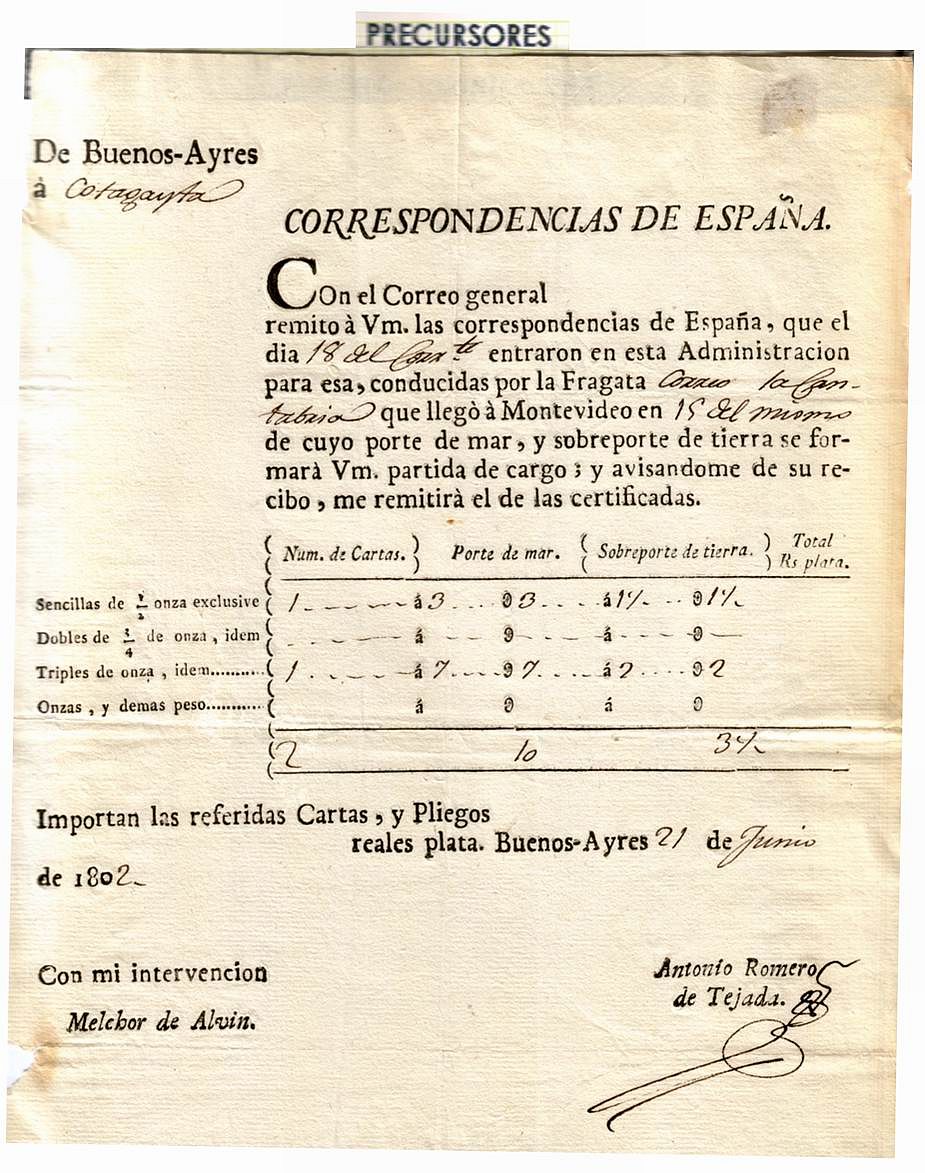 PRECURSORES
De Buenos-Ayres
à Cotagayta
CORRESPONDENCIAS DE ESPAÑA.
COn el Correo general
remito à Vm. las correspondencias de España, que el
dia 18 del Corr.te entraron en esta Administracion
para esa, conducidas por la Fragata Correo la Can-
tabria que llegò à Montevideo en 15 del mismo
de cuyo porte de mar, y sobreporte de tierra se for-
marà Vm. partida de cargo; y avisandome de su re-
cibo, me remitirà el de las certificadas.
Num. de Cartas. Porte de mar. Sobreporte de tierra. Total Rs plata.
Sencillas de ½ onza exclusive 1 á 3 9 3 á 1½ 9 1½
Dobles de ¾ de onza, idem á 9 á 9
Triples de onza, idem........... 1 á 7 9 7 á 2 9 2
Onzas, y demas peso........... á 9 á 9
2 10 3½
Importan las referidas Cartas, y Pliegos
reales plata. Buenos-Ayres 21 de Junio
de 1802
Con mi intervencion
Melchor de Alvin.
Antonio Romero
de Tejada.